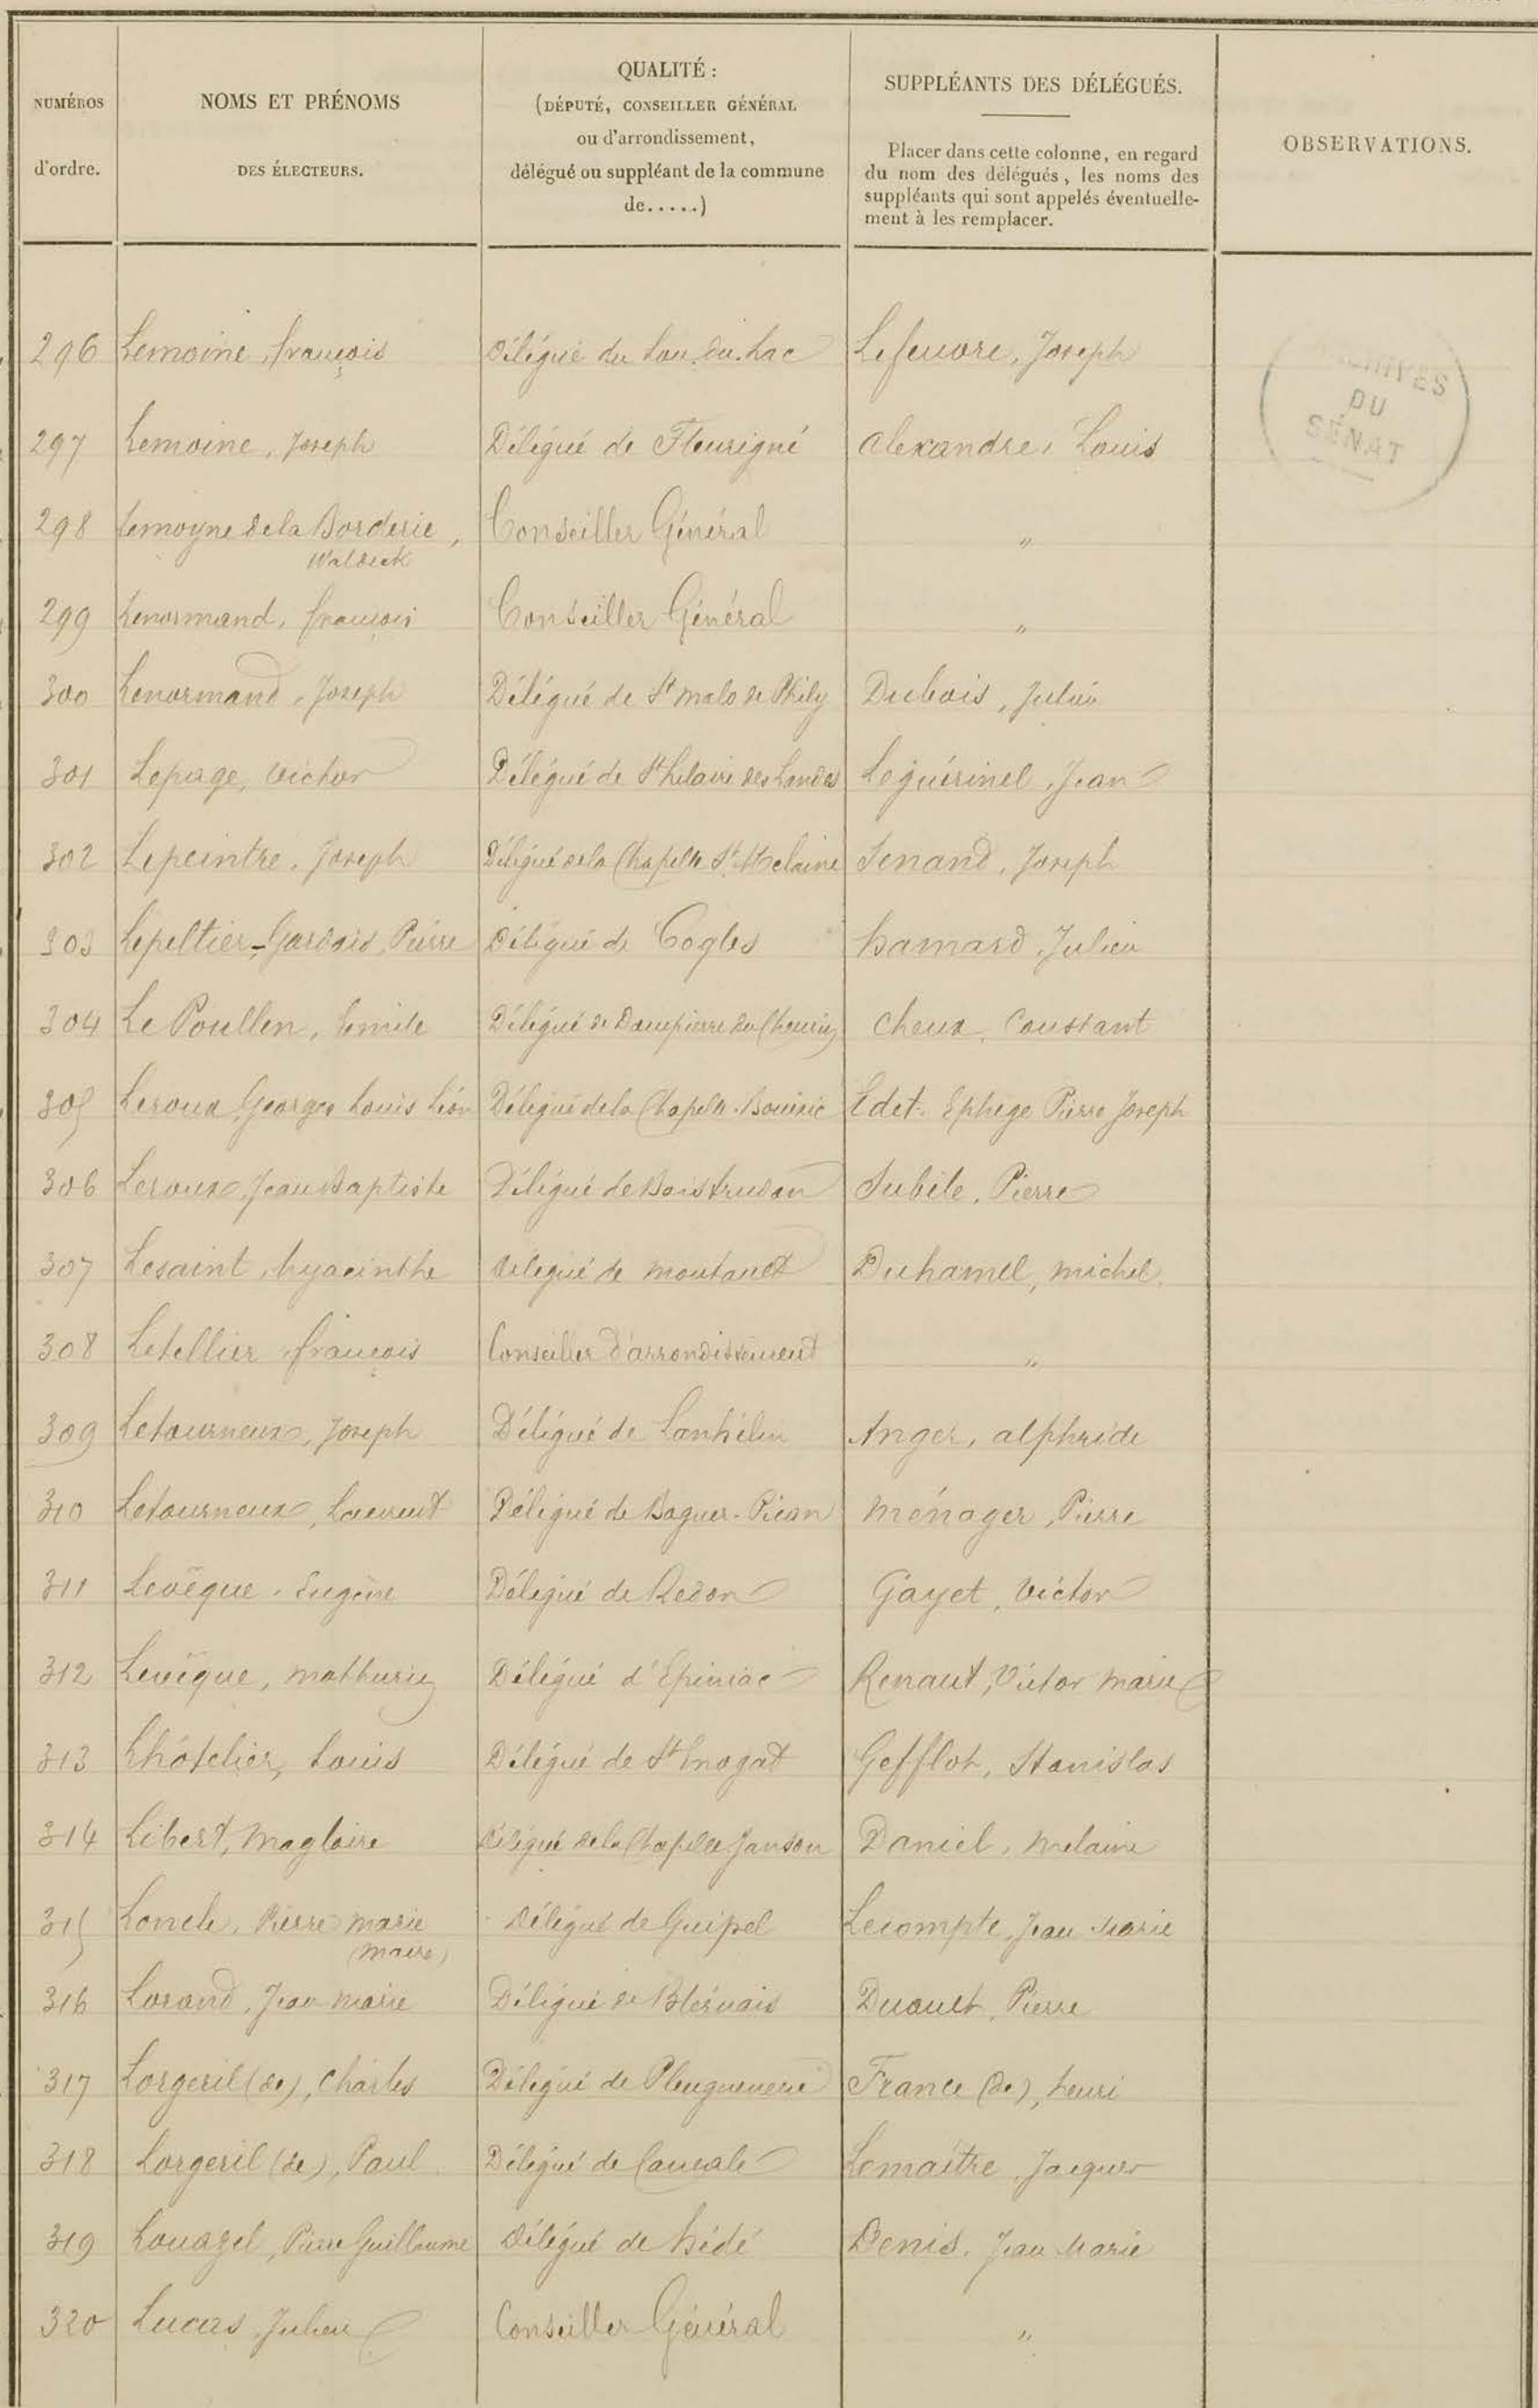 NUMÉROS d'ordre. | NOMS ET PRÉNOMS DES ÉLECTEURS. | QUALITÉ : (DÉPUTÉ, CONSEILLER GÉNÉRAL ou d'arrondissement, délégué ou suppléant de la commune de.....) | SUPPLÉANTS DES DÉLÉGUÉS. Placer dans cette colonne, en regard du nom des délégués, les noms des suppléants qui sont appelés éventuellement à les remplacer. | OBSERVATIONS.
296 Lemoine, françois Délégué du Lou. du. Lac Lefeuvre, Joseph
ARCHIVES DU SÉNAT
297 Lemoine, Joseph Délégué de Fleurigné Alexandre, Louis
298 Lemoyne de la Borderie, Conseiller Général "
Waldeck
299 Lenormand, françois Conseiller Général "
300 Lenormand, Joseph Délégué de St malo de Phily Dubois, Julien
301 Lepage, Victor Délégué de St hilaire des Landes Leguérinel, Jean
302 Lepeintre, Joseph Délégué de la Chapelle St Melaine Senand, Joseph
303 Lepeltier-Gardais, Pierre Délégué de Cogles hamard, Julien
304 Le Poullen, Emile Délégué de Dompierre du Chemin Cheux, Constant
305 Leroux, Georges Louis Léon Délégué de la Chapelle-Bouëxic Edet, Ephege Pierre Joseph
306 Leroux, Jean Baptiste Délégué de Boistrudan Subile, Pierre
307 Lesaint, hyacinthe Délégué de montault Duhamel, michel
308 Letellier, françois Conseiller d'arrondissement "
309 Letourneux, Joseph Délégué de Lanhélin Anger, alphride
310 Letourneux, Laurent Délégué de Baguer-Pican Ménager, Pierre
311 Levêque, Eugène Délégué de Redon Gayet, Victor
312 Levêque, mathurin Délégué d'Epiniac Renaut, Victor marie
313 Lhôtelier, Louis Délégué de St Enogat Gefflot, Stanislas
314 Libert, Magloire Délégué de la Chapelle Janson Daniel, Melaine
315 Loncle, Pierre marie Délégué de Guipel Lecompte, Jean Marie
(maire)
316 Lorand, Jean marie Délégué de Bléruais Duault, Pierre
317 Lorgeril (de), Charles Délégué de Pleugueneuc France (de), henri
318 Lorgeril (de), Paul Délégué de Cancale Lemaître, Jacques
319 Louazel, Pierre Guillaume Délégué de hédé Denis, Jean Marie
320 Lucas, Julien Conseiller Général "